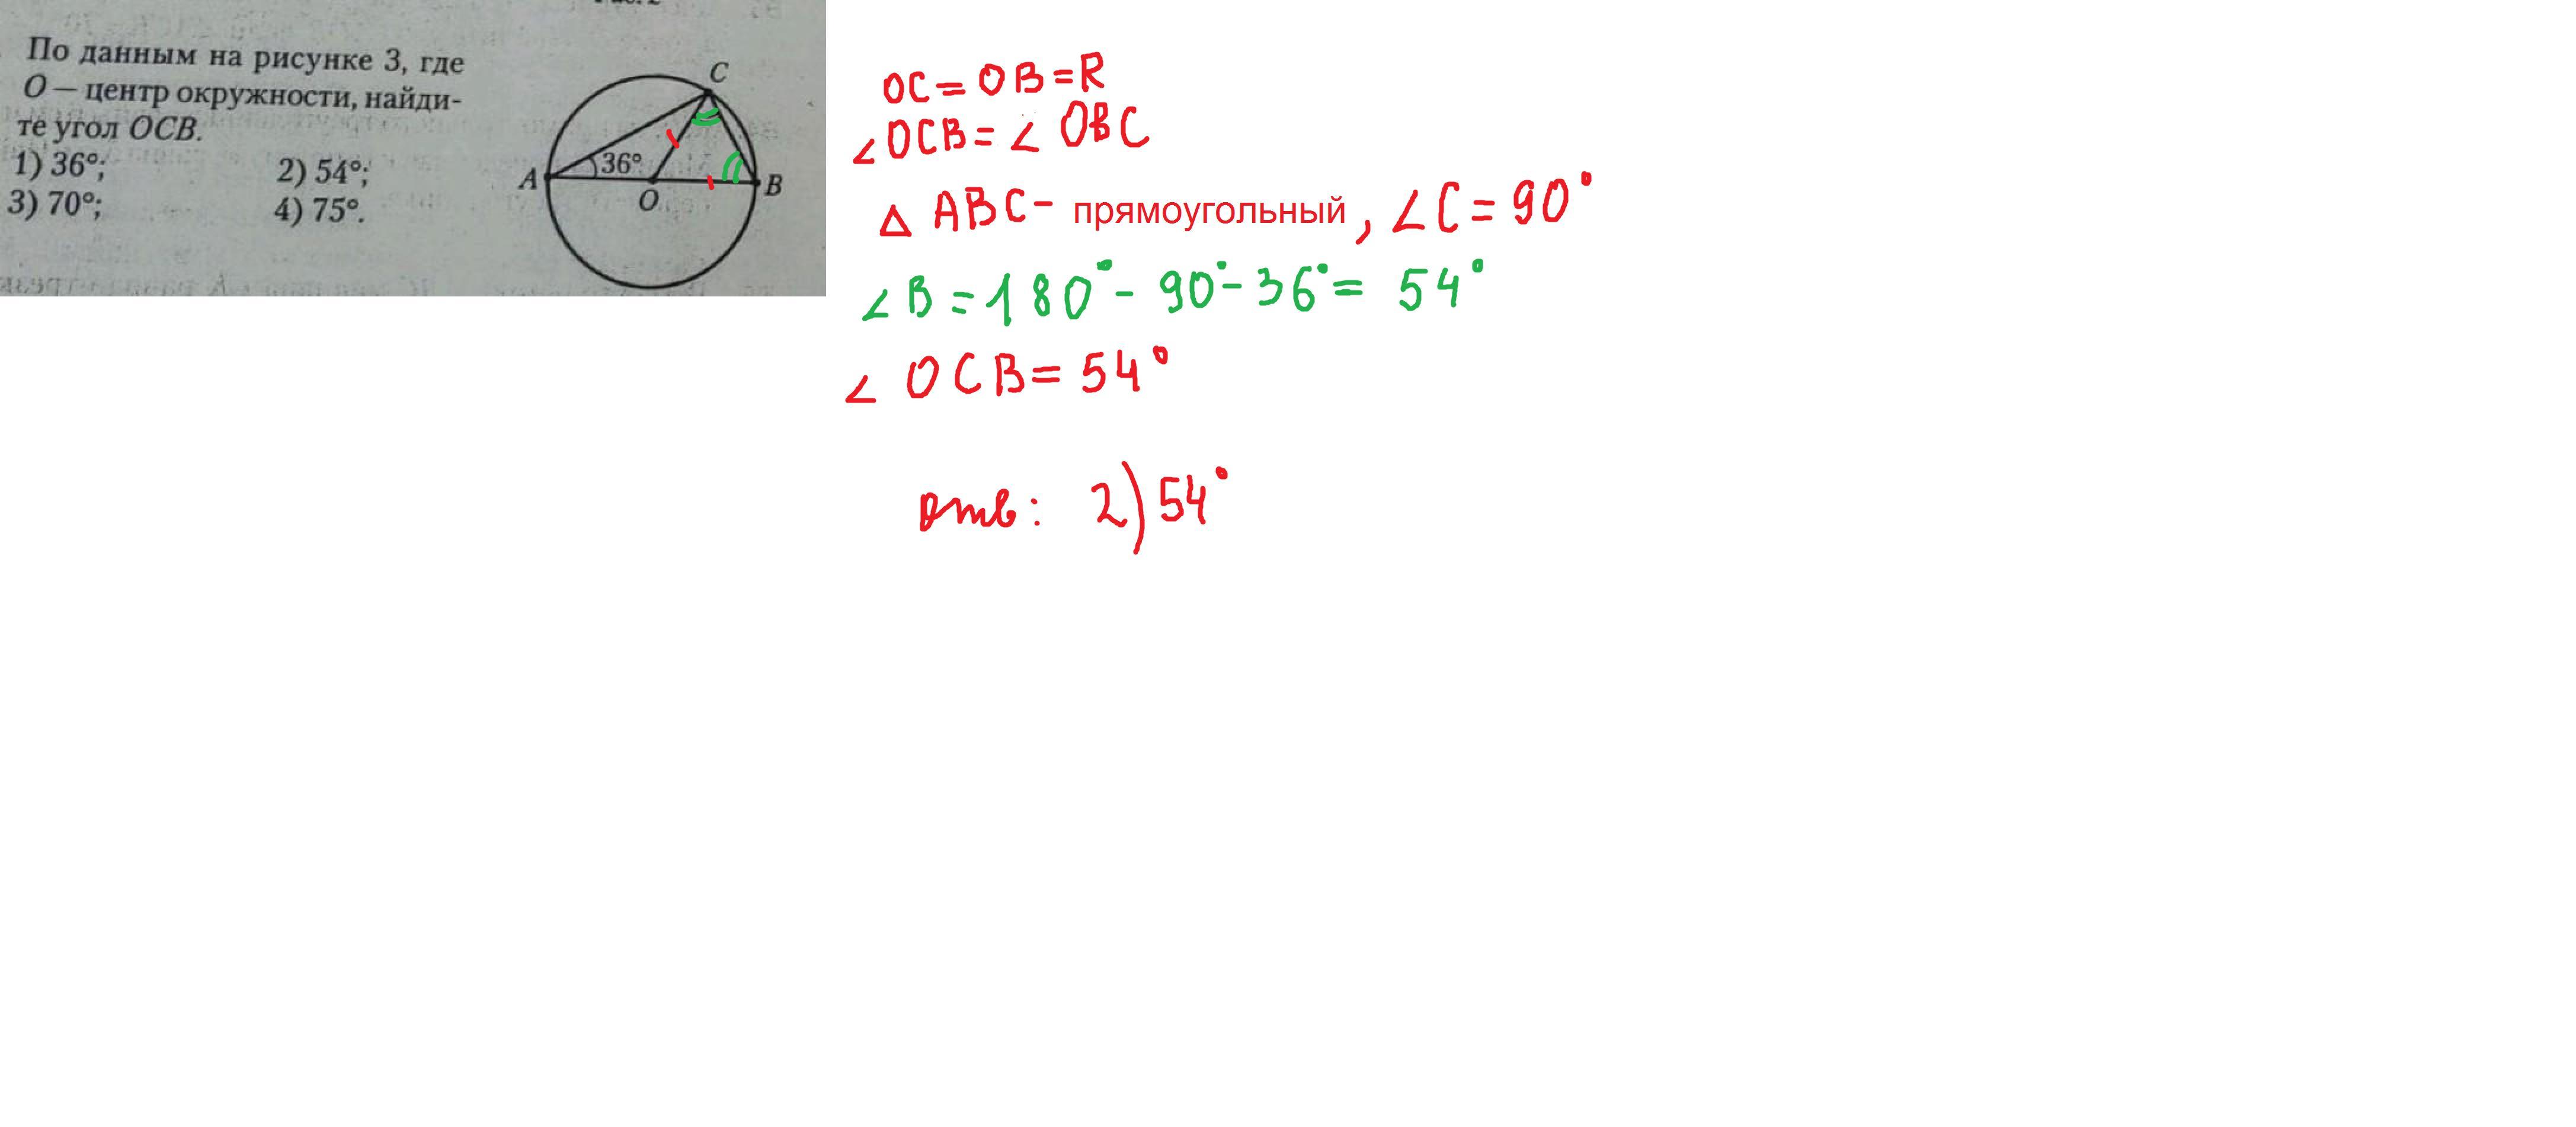 По данным на рисунке 3, где
O — центр окружности, найди-
те угол OCB.
1) 36°; 2) 54°;
3) 70°; 4) 75°.
C
36°
A
O
B
OC = OB = R
∠OCB = ∠OBC
△ ABC - прямоугольный, ∠C = 90°
∠B = 180° - 90° - 36° = 54°
∠OCB = 54°
Отв: 2) 54°